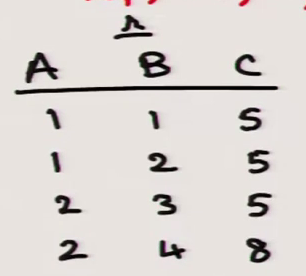 r
A B C
1 1 5
1 2 5
2 3 5
2 4 8